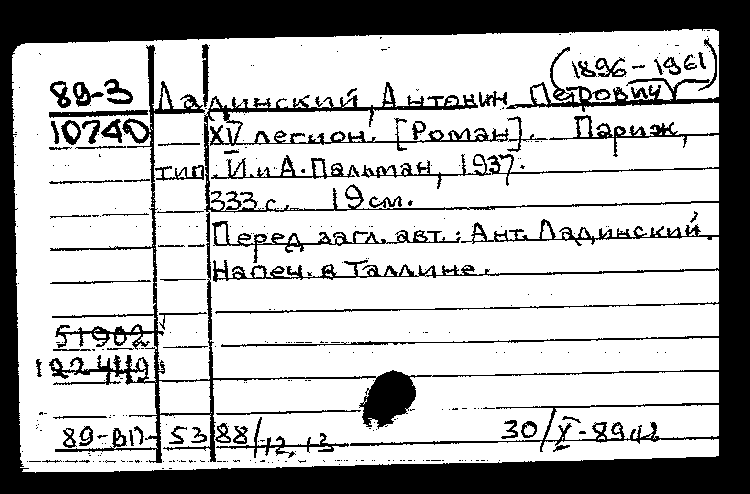 (1896-1961)
89-3 Ладинский, Антонин Петрович
10740 XIV легион. [Роман]. Париж,
тип. И. и А. Пальман, 1937.
333 с. 19 см.
Перед загл. авт.: Ант. Ладинский.
Напеч. в Таллине.
51902
122449
89-ВП- 53 88/12, 13 30/X-89